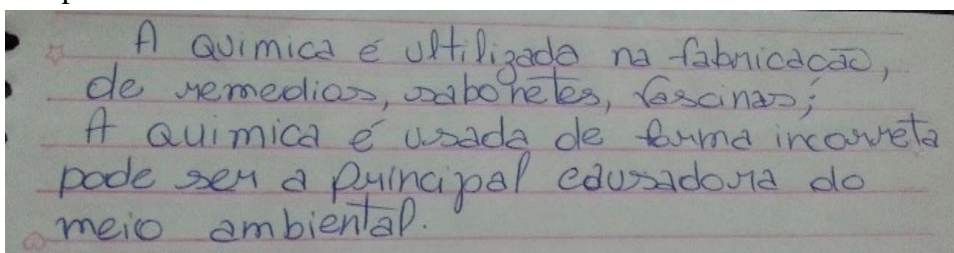 A Quimica é ultilizada na fabricação,
de remedios, sabonetes, vascinas;
A quimica é usada de forma incorreta
pode ser a principal causadora do
meio ambiental.